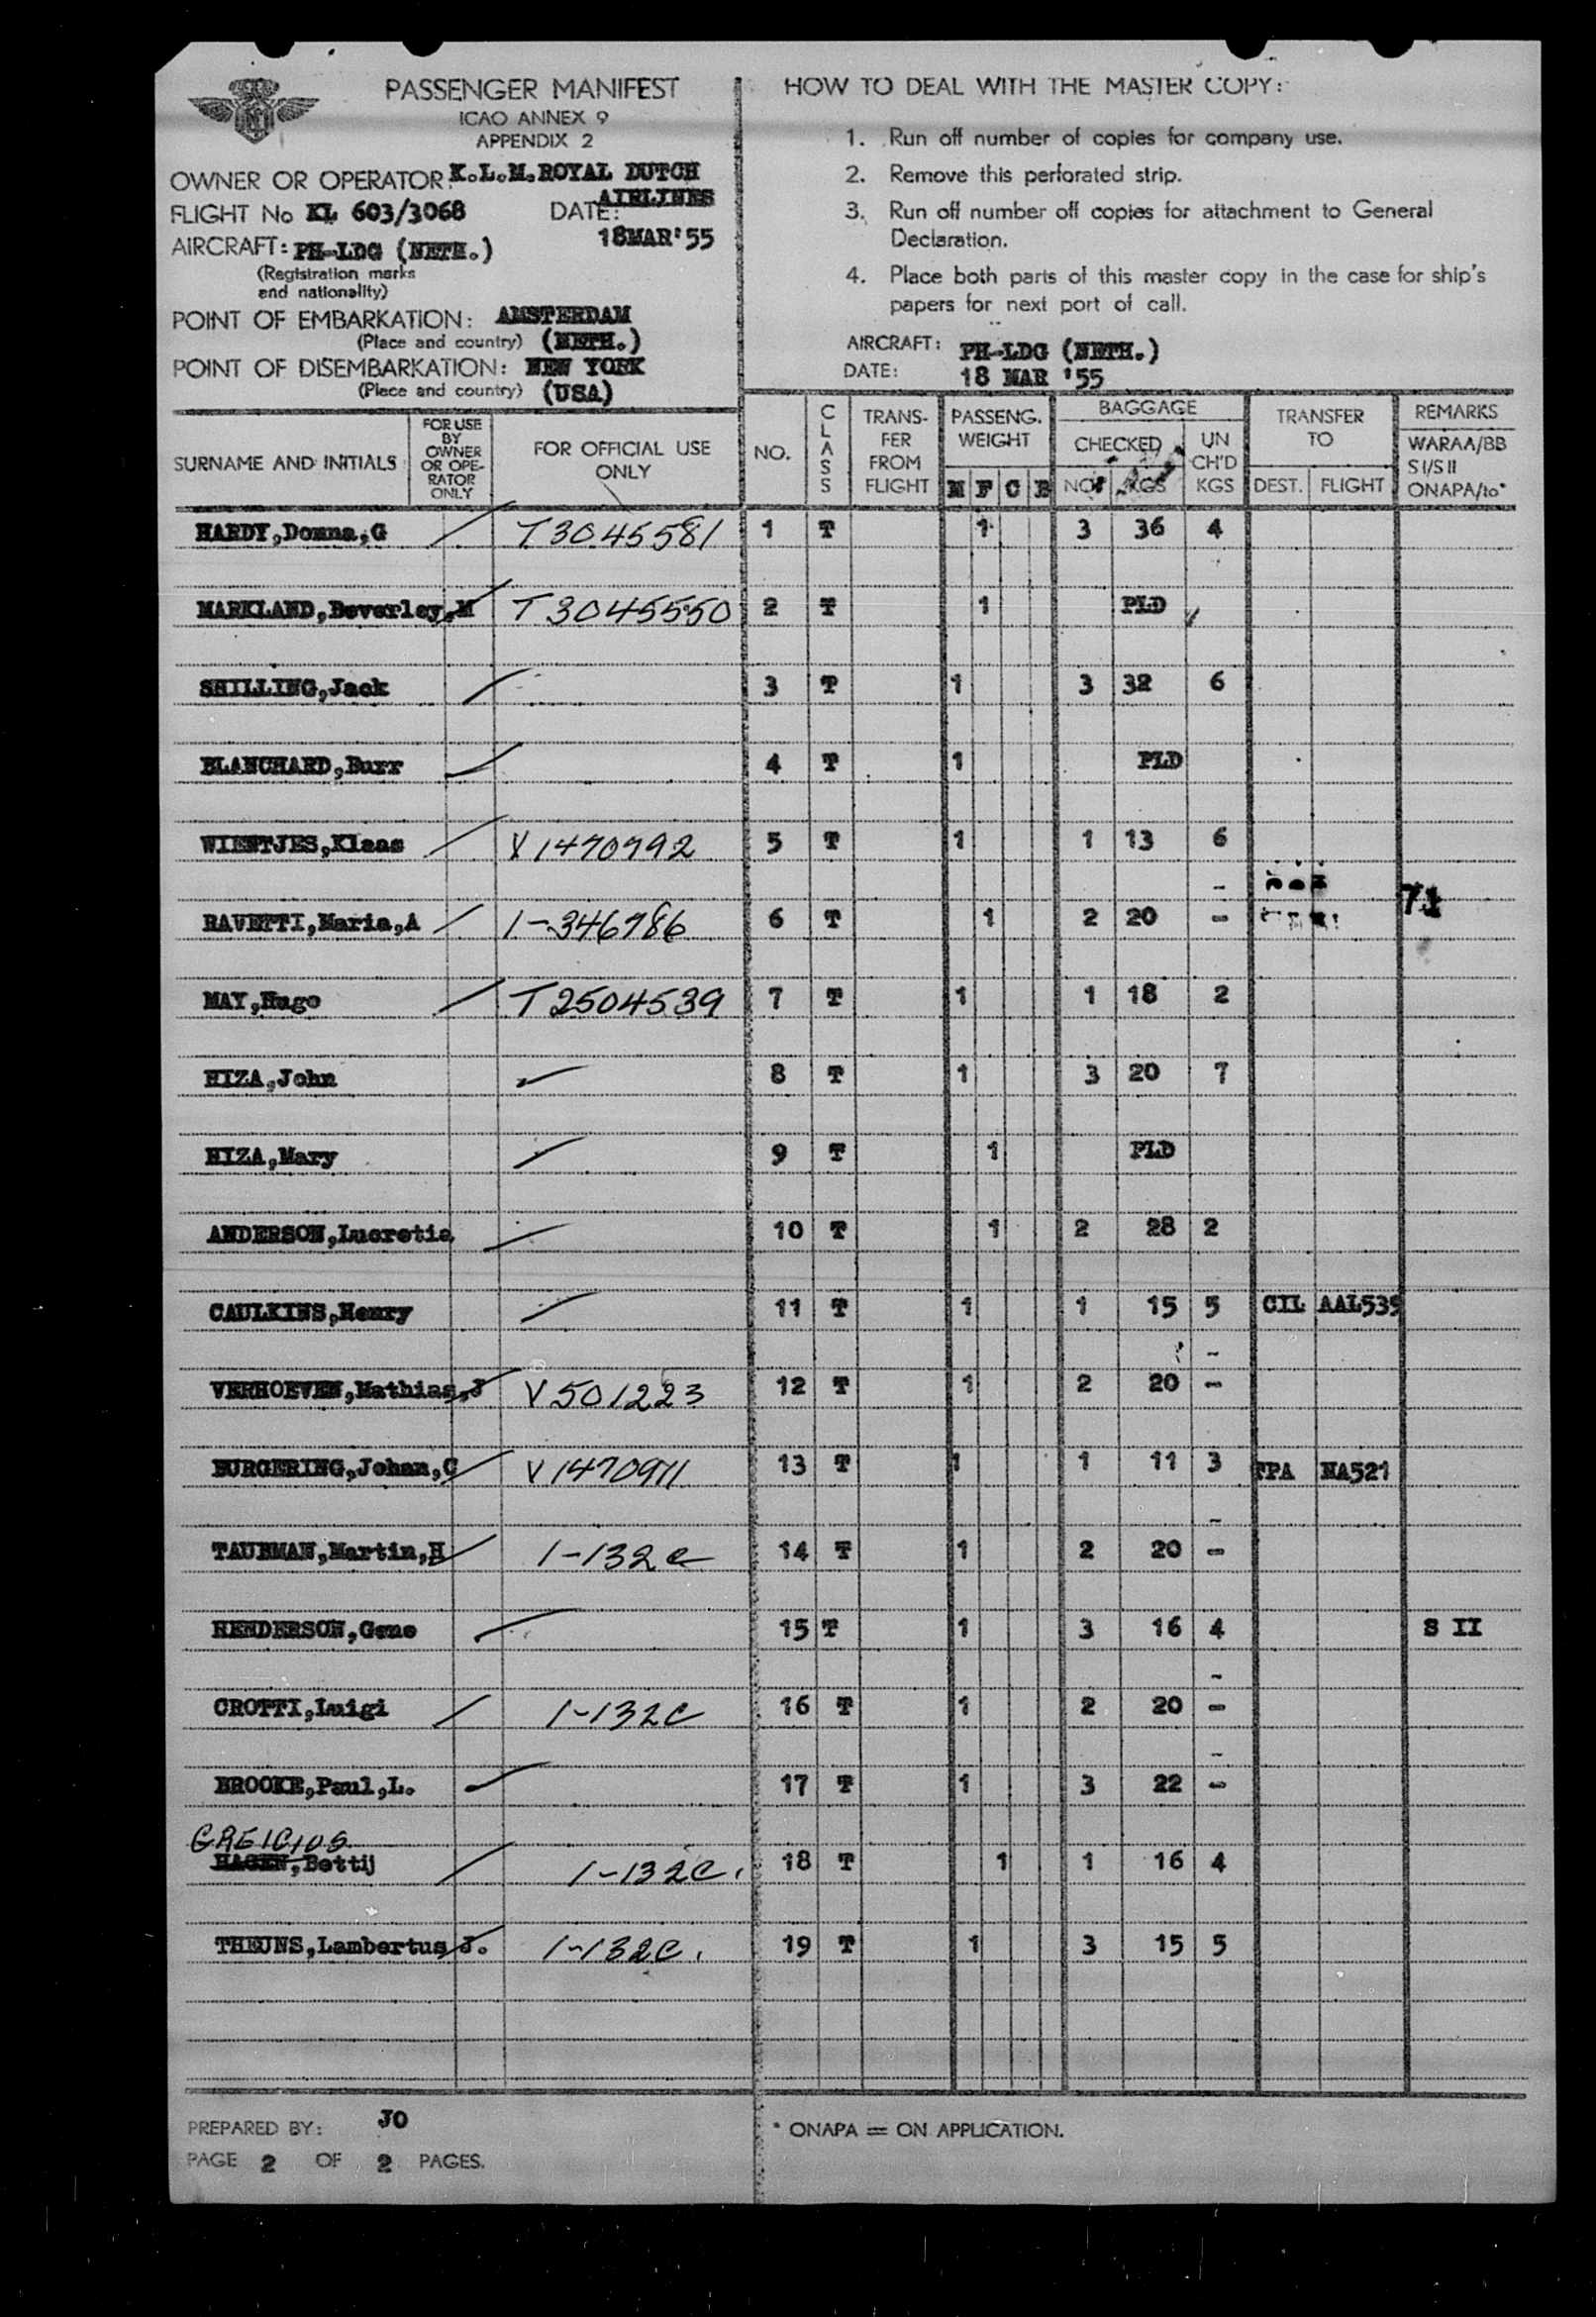 PASSENGER MANIFEST
ICAO ANNEX 9
APPENDIX 2
OWNER OR OPERATOR: K.L.M. ROYAL DUTCH AIRLINES
FLIGHT No KL 603/3068 DATE: 18MAR'55
AIRCRAFT: PH-LDG (NETH.)
(Registration marks
and nationality)
POINT OF EMBARKATION: AMSTERDAM
(Place and country) (NETH.)
POINT OF DISEMBARKATION: NEW YORK
(Place and country) (USA)
HOW TO DEAL WITH THE MASTER COPY:
1. Run off number of copies for company use.
2. Remove this perforated strip.
3. Run off number off copies for attachment to General
Declaration.
4. Place both parts of this master copy in the case for ship's
papers for next port of call.
AIRCRAFT: PH-LDG (NETH.)
DATE: 18 MAR '55
SURNAME AND INITIALS
FOR USE
BY
OWNER
OR OPE-
RATOR
ONLY
FOR OFFICIAL USE
ONLY
NO.
CLASS
TRANS-
FER
FROM
FLIGHT
PASSENG.
WEIGHT
M F C B
BAGGAGE
CHECKED
NO. KGS
UN
CH'D
KGS
TRANSFER
TO
DEST. FLIGHT
REMARKS
WARAA/BB
S I/S II
ONAPA/to*
HARDY,Donna,G T3045581 1 T 1 3 36 4
MARKLAND,Beverley,M T3045550 2 T 1 PLD
SHILLING,Jack 3 T 1 3 32 6
BLANCHARD,Burr 4 T 1 PLD
WIENTJES,Klaas V1470792 5 T 1 1 13 6
RAVETTI,Maria,A 1-346786 6 T 1 2 20 -- 71
MAY,Hugo T2504539 7 T 1 1 18 2
HIZA,John 8 T 1 3 20 7
HIZA,Mary 9 T 1 PLD
ANDERSON,Lucretia 10 T 1 2 28 2
CAULKINS,Henry 11 T 1 1 15 5 CIL AAL535
VERHOEVEN,Mathias,J V501223 12 T 1 2 20 --
BURGERING,Johan,C V1470911 13 T 1 1 11 3 TPA NA521
TAUBMAN,Martin,H 1-132c 14 T 1 2 20 --
HENDERSON,Gene 15 T 1 3 16 4 S II
CROTTI,Luigi 1-132c 16 T 1 2 20 --
BROOKE,Paul,L. 17 T 1 3 22 --
GREICIUS
HAGEN,Bettij 1-132c. 18 T 1 1 16 4
THEUNS,Lambertus J. 1-132c. 19 T 1 3 15 5
PREPARED BY: JO
PAGE 2 OF 2 PAGES.
* ONAPA = ON APPLICATION.